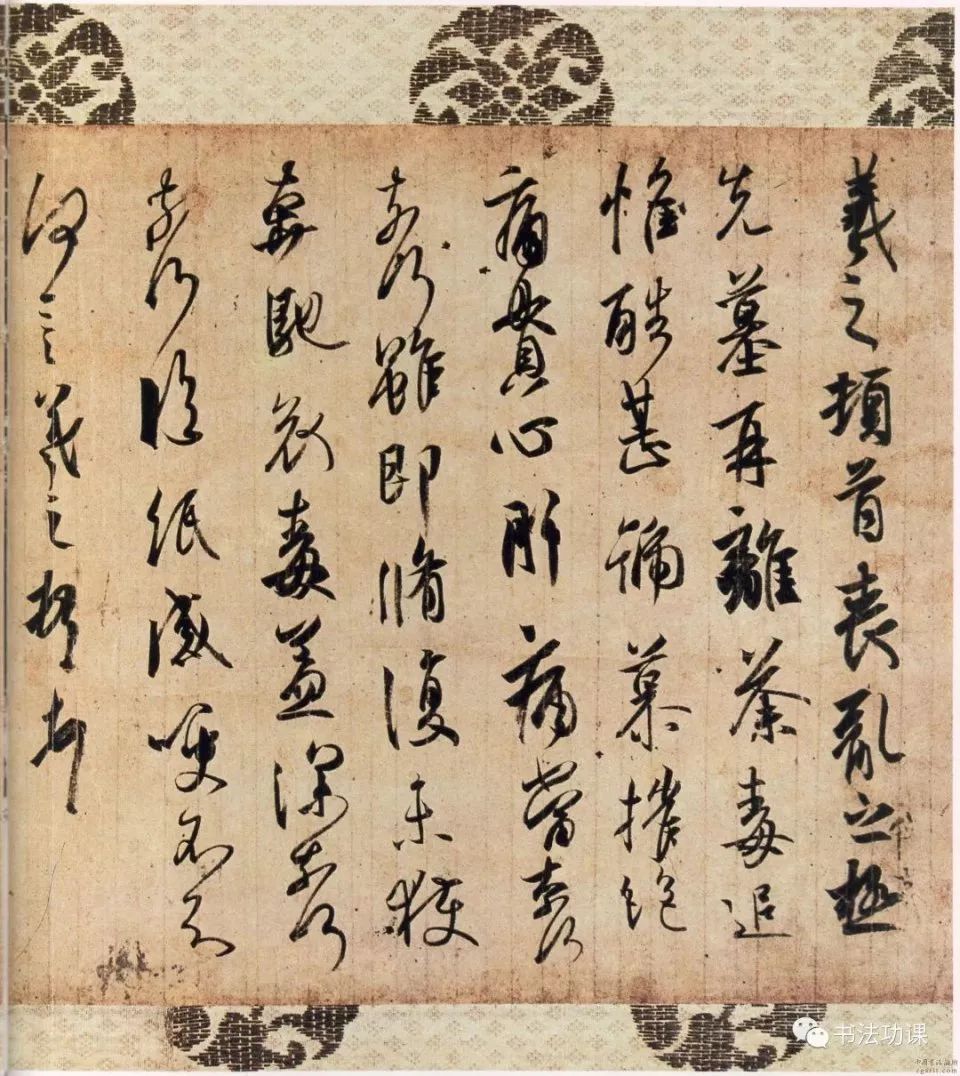 羲之頓首喪亂之極
先墓再離荼毒追
惟酷甚號慕摧絕
痛貫心肝痛當奈何
奈何雖即脩復未獲
奔馳哀毒益深奈何
奈何臨紙感哽不知
何言羲之頓首頓首
书法功课